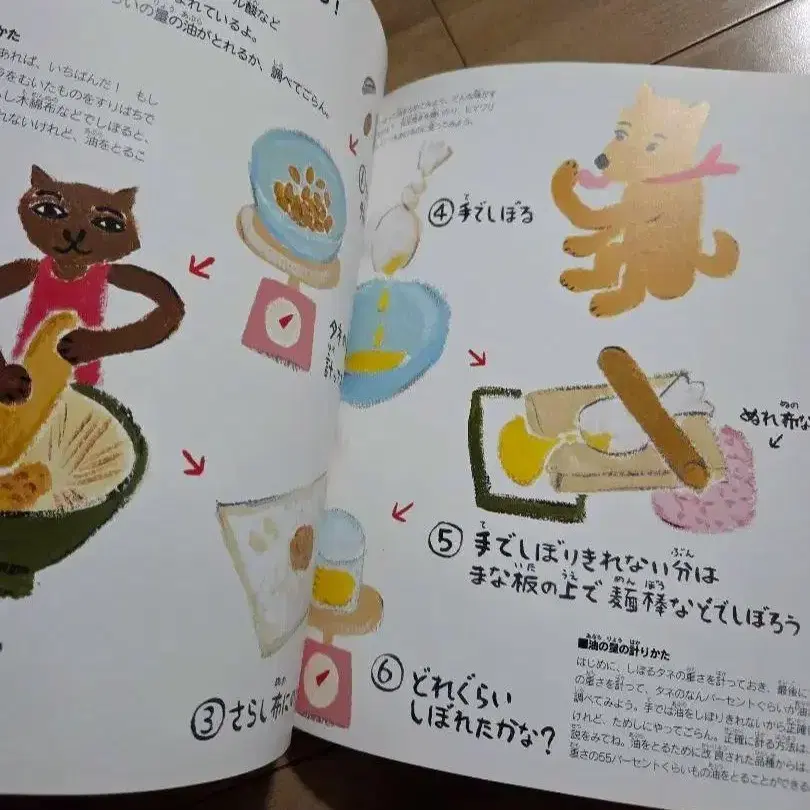 ル酸など
れているよ。
らいの量の油がとれるか、調べてごらん。
かた
あれば、いちばんだ！ もし
をむいたものをすりばちで
し木綿布などでしぼると、
れないけれど、油をとるこ
タネの
計っ
③さらし布に
④手でしぼる
ぬれ布な
⑤手でしぼりきれない分は
まな板の上で麺棒などでしぼろう
⑥どれぐらい
しぼれたかな？
■油の量の計りかた
はじめに、しぼるタネの重さを計っておき、最後に
の重さを計って、タネのなんパーセントぐらいか油
調べてみよう。手では油をしぼりきれないから正確
けれど、ためしにやってごらん。正確に計る方法は、
説をみてね。油をとるために改良された品種からは、
重さの55パーセントぐらいもの油をとることができる